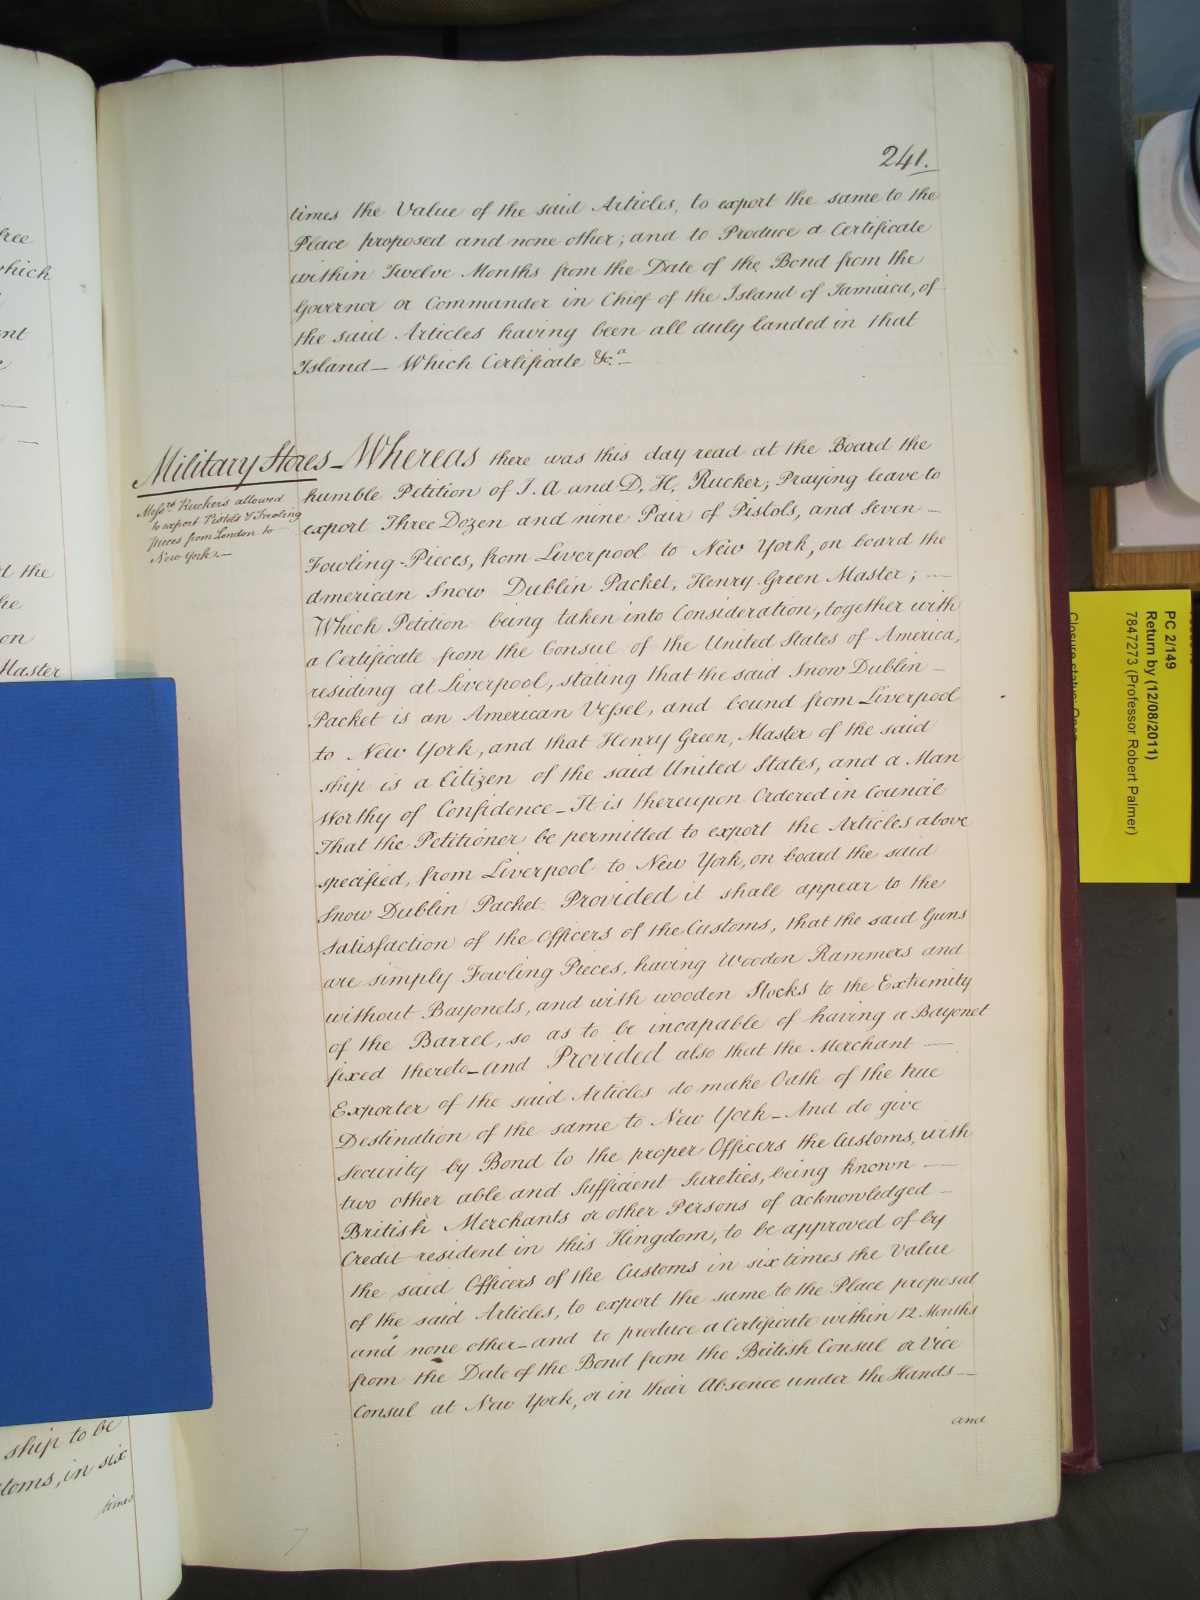 241.
times the Value of the said Articles, to export the same to the
Place proposed and none other; and to Produce a Certificate
within Twelve Months from the Date of the Bond from the
Governor or Commander in Chief of the Island of Jamaica, of
the said Articles having been all duly landed in that
Island_ Which Certificate &c.a_
Military Stores_Whereas there was this day read at the Board the
Messrs Rucker's allowed
to export Pistols & Fowling
pieces from London to
New York._
humble Petition of J. A and D. H. Rucker; Praying leave to
export Three Dozen and nine Pair of Pistols, and Seven _
Fowling-Pieces, from Liverpool to New York, on board the
american Snow Dublin Packet, Henry Green Master; _
Which Petition being taken into Consideration, together with
a Certificate from the Consul of the United States of America,
residing at Liverpool, stating that the said Snow Dublin _
Packet is an American Vessel, and bound from Liverpool
to New York, and that Henry Green, Master of the said
ship is a Citizen of the said United States, and a Man
Worthy of Confidence_It is thereupon Ordered in Council
That the Petitioner be permitted to export the Articles above
specified, from Liverpool to New York, on board the said
Snow Dublin Packet. Provided it shall appear to the
satisfaction of the Officers of the Customs, that the said Guns
are simply Fowling Pieces, having Wooden Rammers and
without Bayonets, and with wooden Stocks to the Extremity
of the Barrel, so as to be incapable of having a Bayonet
fixed thereto_and Provided also that the Merchant _
Exporter of the said Articles do make Oath of the true
Destination of the same to New York_And do give
security by Bond to the proper Officers the Customs, with
two other able and Sufficient Sureties, being known _
British Merchants or other Persons of acknowledged _
Credit resident in this Kingdom, to be approved of by
the said Officers of the Customs in six times the value
of the said Articles, to export the same to the Place proposal
and none other_and to produce a Certificate within 12 Months
from the Date of the Bond from the British Consul or Vice
Consul at New York, or in their Absence under the Hands_
and
which
the
on
Master
ship to be
toms, in six
times
PC 2/149
Return by (12/08/2011)
7847273 (Professor Robert Palmer)